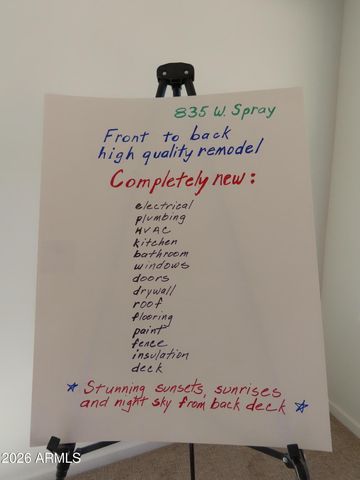 835 W. Spray
Front to back
high quality remodel
Completely new:
electrical
plumbing
HVAC
kitchen
bathroom
windows
doors
drywall
roof
flooring
paint
fence
insulation
deck
Stunning sunsets, sunrises
and night sky from back deck
2026 ARMLS